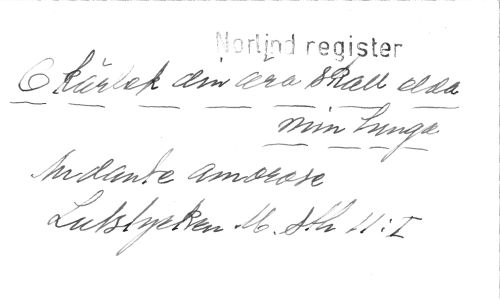 Norlind register
O kärlek din ära skall elda
min tunga
Andante amorose
Lutstycken M. Sth 11:I